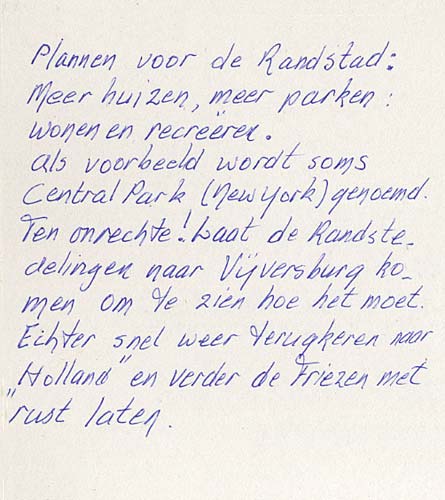 Plannen voor de Randstad:
Meer huizen, meer parken:
wonen en recreëren.
als voorbeeld wordt soms
Central Park (New York) genoemd.
Ten onrechte! Laat de Randste-
delingen naar Vijversburg ko-
men om te zien hoe het moet.
Echter snel weer terugkeren naar
"Holland" en verder de Friezen met
rust laten.